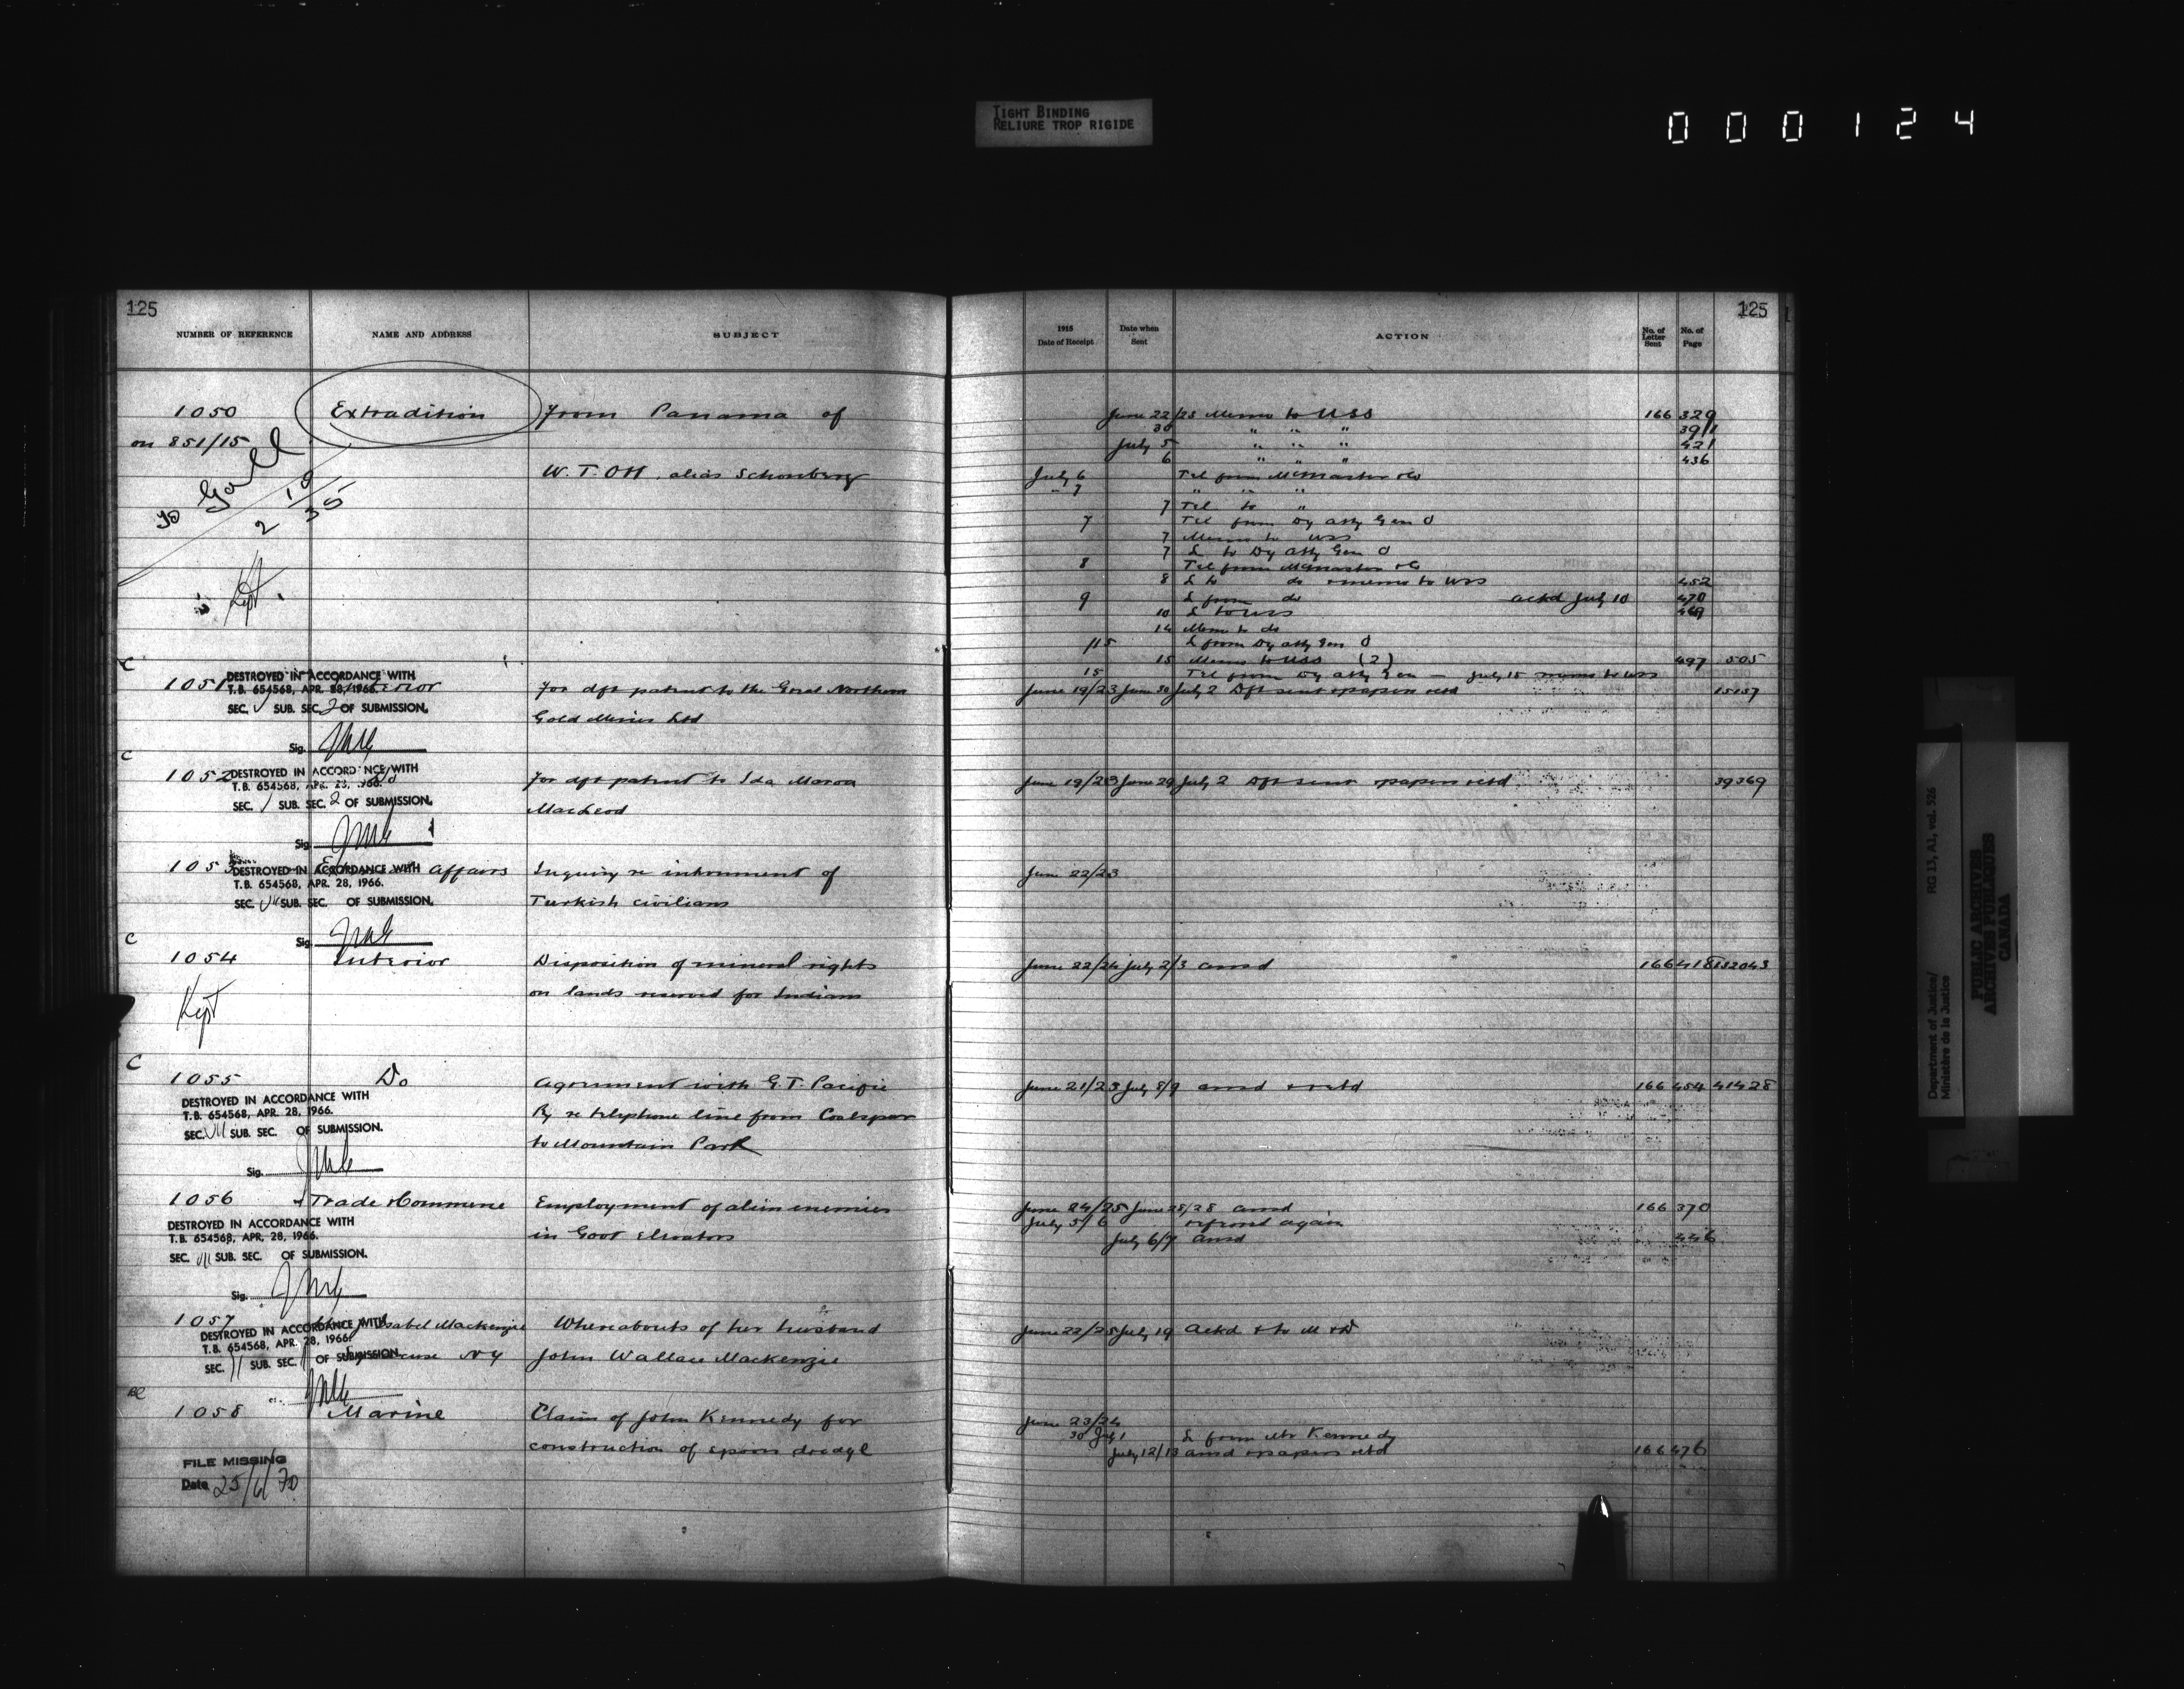 TIGHT BINDING
RELIURE TROP RIGIDE
000124
125
NUMBER OF REFERENCE NAME AND ADDRESS SUBJECT
1050 Extradition from Panama of
on 851/15
W. T. Ott, alias Schonberg
Kept
C
1051 Interior For dft patent to the Great Northern
DESTROYED IN ACCORDANCE WITH
T.B. 654568, APR. 28, 1966.
SEC. V SUB. SEC. 2 OF SUBMISSION.
Gold Mines Ltd
Sig.
C
1052 Do For dft patent to Ida Morva
DESTROYED IN ACCORDANCE WITH
T.B. 654568, APR. 28, 1966.
SEC. / SUB. SEC. 2 OF SUBMISSION.
MacLeod
Sig.
1053 Affairs Inquiry re internment of
DESTROYED IN ACCORDANCE WITH
T.B. 654568, APR. 28, 1966.
SEC. VII SUB. SEC. OF SUBMISSION.
Turkish civilians
Sig.
C
1054 Interior Disposition of mineral rights
on lands reserved for Indians
Kept
C
1055 Do Agreement with G.T. Pacific
DESTROYED IN ACCORDANCE WITH
T.B. 654568, APR. 28, 1966.
SEC. VII SUB. SEC. OF SUBMISSION.
Ry re telephone line from Coalspur
to Mountain Park
Sig.
1056 Trade & Commerce Employment of alien enemies
DESTROYED IN ACCORDANCE WITH
T.B. 654568, APR. 28, 1966.
SEC. VII SUB. SEC. OF SUBMISSION.
in Govt Elevators
Sig.
1057 Isabel Mackenzie Whereabouts of her husband
DESTROYED IN ACCORDANCE WITH
T.B. 654568, APR. 28, 1966.
SEC. 11 SUB. SEC. OF SUBMISSION.
Syracuse NY John Wallace Mackenzie
1058 Marine Claim of John Kennedy for
construction of spoon dredge
FILE MISSING
Date 25/6/70
125
1915 Date of Receipt Date when Sent ACTION No. of Letter Sent No. of Page
June 22/23 Memo to USS 166 329
30 " " " 391
July 5 " " " 421
6 " " " 436
July 6 Tel from McMaster &Co
" 7 " " "
7 Tel to "
7 Tel from Dy Atty Gen O
7 Memo to USS
7 L to Dy Atty Gen O
8 Tel from McMaster &Co
8 L to do & memo to USS 452
9 L from do ackd July 10 470
10 L to USS 469
14 Memo to do
15 L from Dy Atty Gen O
15 Memo to USS (2) 497 505
15 Tel from Dy Atty Gen — July 15 memo to USS
June 19/23 June 30 July 2 Dft sent & papers retd 15157
June 19/23 June 29 July 2 Dft sent & papers retd 39369
June 22/23
June 22/24 July 2/3 ansd 166 418
June 21/23 July 8/9 ansd & retd 166 454 41428
June 24/25 June 28/28 ansd 166 370
July 5/6 referred again
July 6/7 ansd 446
June 22/25 July 19 ackd & to M & D
June 23/24
30 July 1 L from Mr Kennedy
July 12/13 ansd & papers retd 166 476
Department of Justice/
Ministère de la Justice
RG 13, A1, vol. 526
PUBLIC ARCHIVES
ARCHIVES PUBLIQUES
CANADA